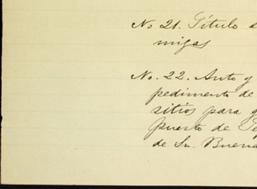 No 21. Título
migas
No. 22. Auto y
pedimento de
sitios para
puerto de
de Sn. Buena